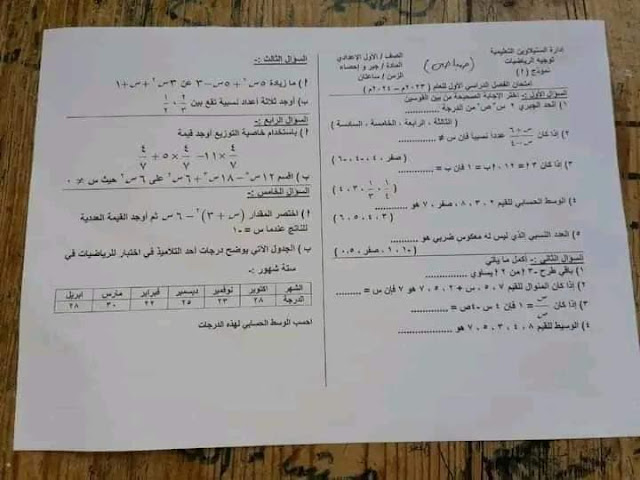 ادارة السنبلاوين التعليمية
توجيه الرياضيات
نموذج (٢)
الصف / الأول الإعدادي
المادة / جبر و إحصاء
الزمن / ساعتان
امتحان الفصل الدراسي الأول للعام ( ٢٠٢٣م – ٢٠٢٤م )
السؤال الأول :- اختر الإجابة الصحيحة من بين القوسين
١) الحد الجبري ٢ س
ص
من الدرجة ..........
( الثالثة ، الرابعة ، الخامسة ، السادسة )
٢) إذا كان (س + ٦)/(س − ٤) عدداً نسبياً فان س ≠ ............
( صفر ، ٤ ، −٤ ، −٦ )
( ١/٣ ، ١/٤ ، ٣ ، ٤ )
٤) الوسط الحسابي للقيم ٢ ، ٣ ، ٨ ، صفر ، ٧ هو ........
( ٣ ، ٤ ، ٥ ، ٦ )
٥) العدد النسبي الذي ليس له معكوس ضربي هو ..........
السؤال الثاني :- أكمل ما يأتي
١) باقي طرح −٣أ من ٢أ يساوي ............
٢) إذا كان المنوال للقيم ٧ ، ٥ ، س + ٢ ، ٥ ، ٧ هو ٧ فإن س = ...........
٣) إذا كان س/ص = ١ فإن ٤ س − ٤ص = ............
٤) الوسيط للقيم ٨ ، ٤ ، ٣ ، ٥ ، ٧ هو ............
السؤال الثالث :-
أ ) ما زيادة ٥س² + ٥س − ٣ عن ٣س² + س + ١
ب) أوجد ثلاثة أعداد نسبية تقع بين ١/٢ ، ٢/٣
السؤال الرابع :-
أ ) باستخدام خاصية التوزيع أوجد قيمة
٤/٧ × ٥ + ٤/٧ × ١١ −
السؤال الخامس :-
أ ) اختصر المقدار ( س + ٣ )² − ٦ س ثم أوجد القيمة العددية
للناتج عندما س = −١
ب ) الجدول الآتي يوضح درجات أحد التلاميذ في اختبار للرياضيات في
ستة شهور :-
الشهر اكتوبر نوفمبر ديسمبر فبراير مارس ابريل
الدرجة ٢٨ ٢٣ ٢٥ ٢٢ ٣٠ ٢٨
احسب الوسط الحسابي لهذه الدرجات